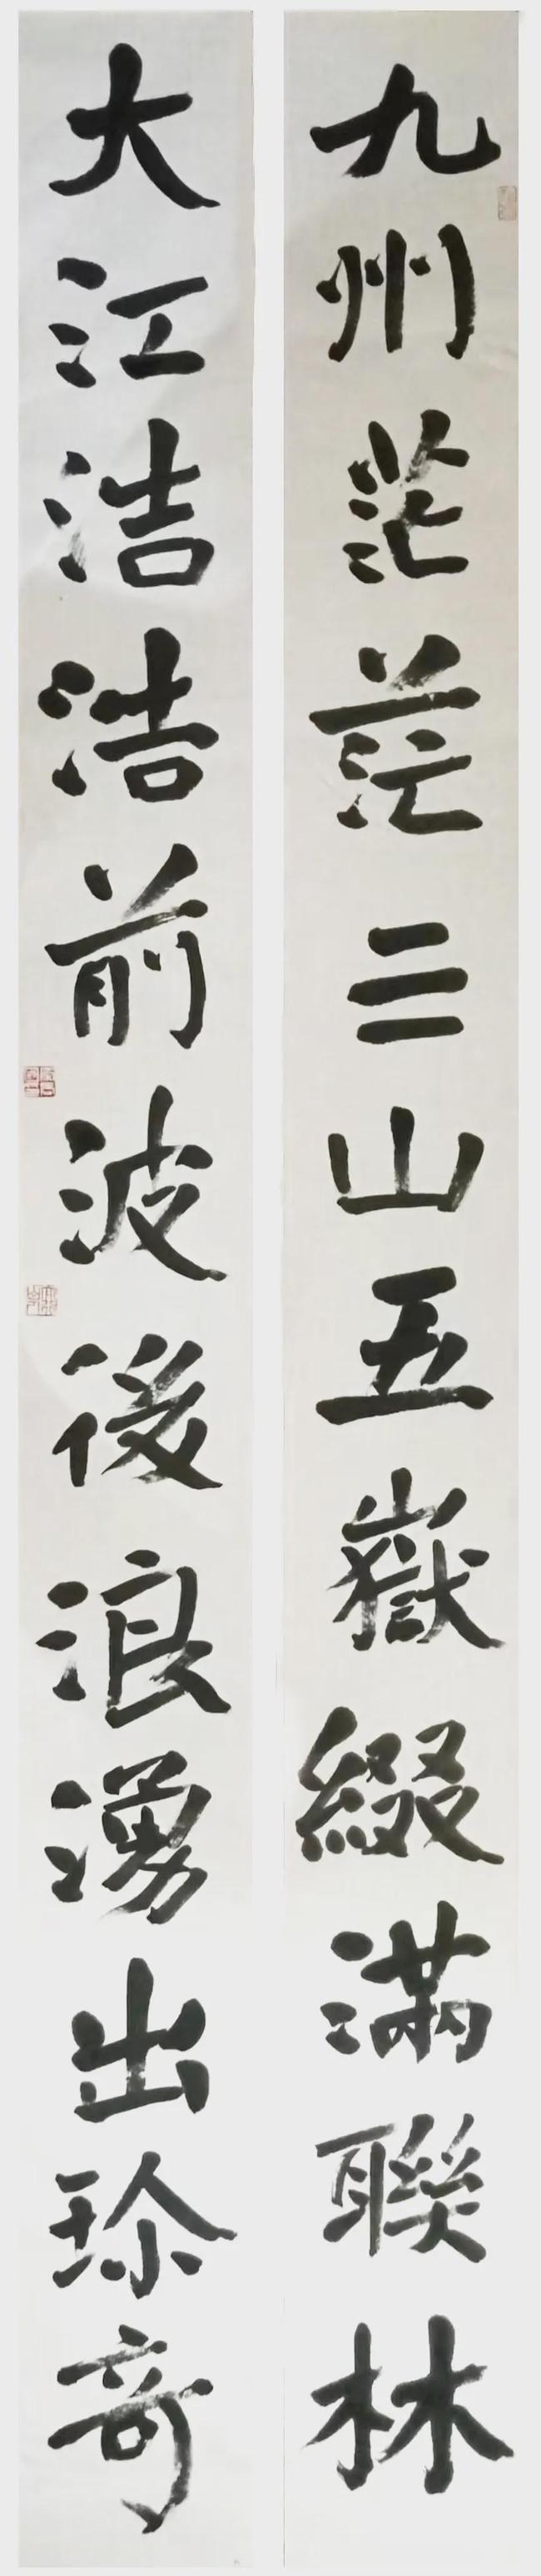 九州茫茫三山五嶽綴滿聯林
大江浩浩前波後浪湧出珍奇